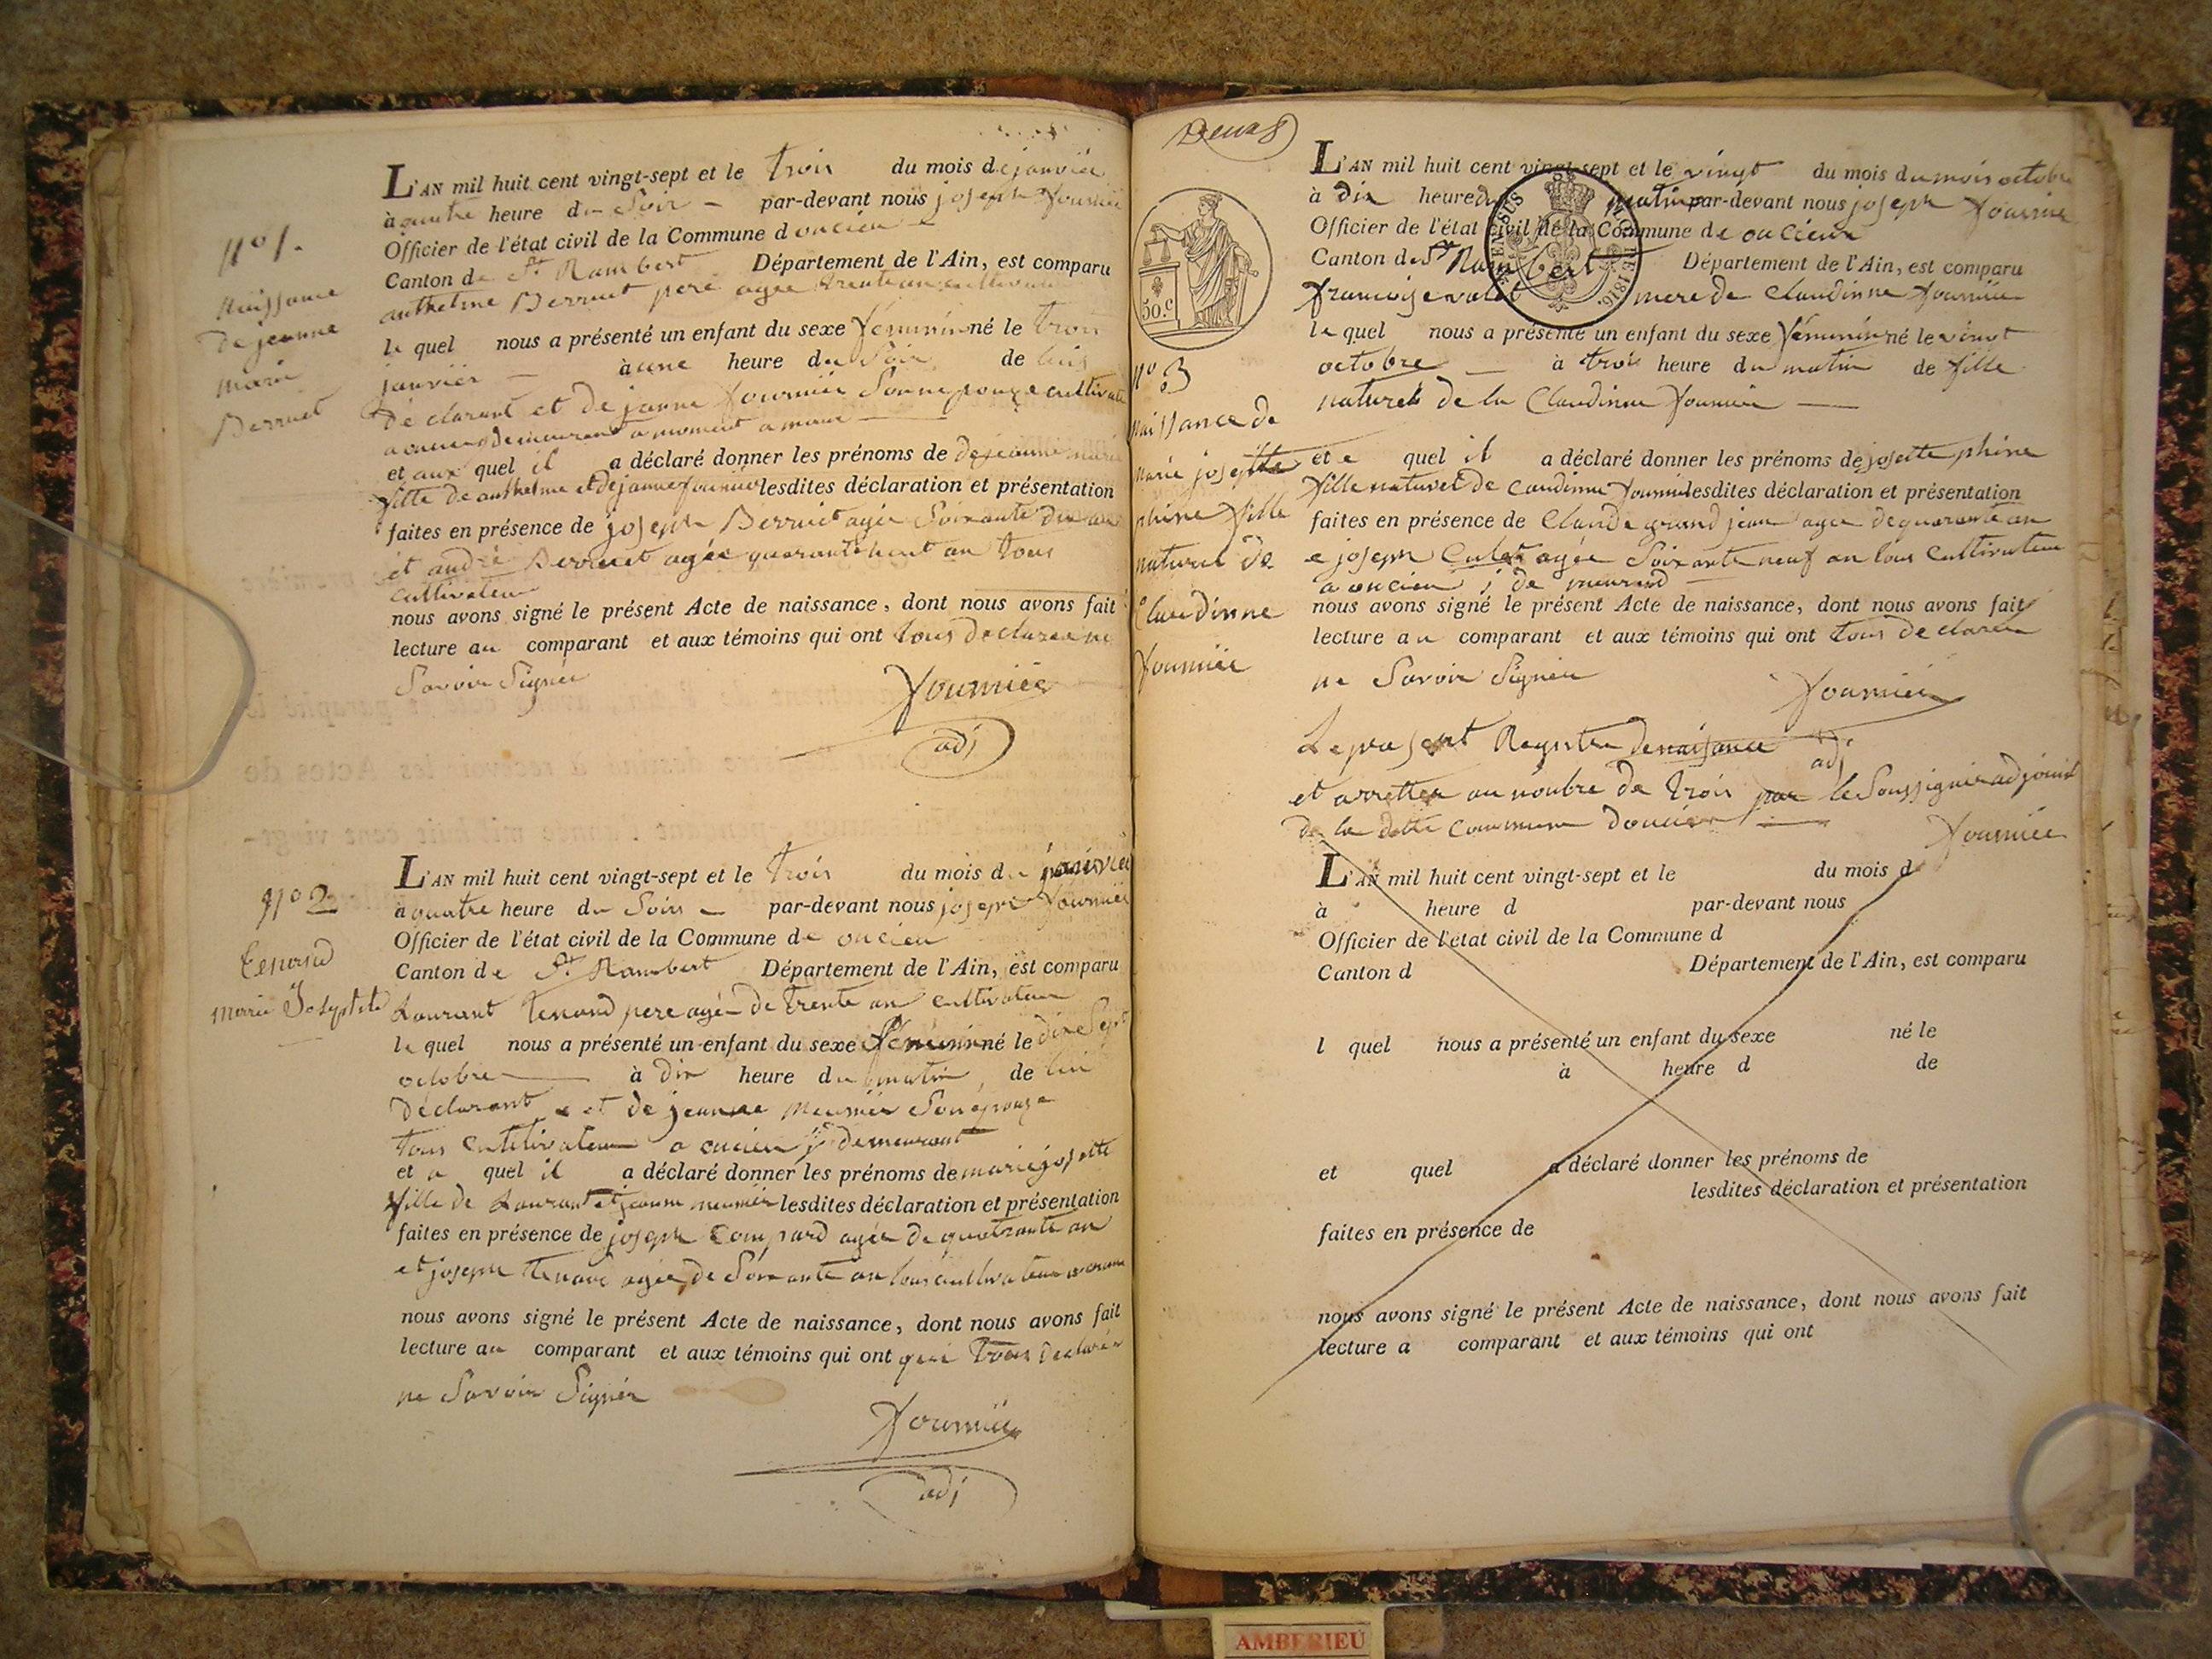 N° 1.
Naissance
de jeanne
marie
Berruet
L'AN mil huit cent vingt-sept et le trois du mois de janvier
à quatre heure du Soir par-devant nous joseph fournier
Officier de l'état civil de la Commune d oncieu
Canton de St Rambert Département de l'Ain, est comparu
anthelme Berruet pere agee trente an cultivateur
le quel nous a présenté un enfant du sexe féminin né le trois
janvier à une heure du Soir de lui
déclarant et de janne fournier Son epouze cultivate
a oncieu demeurant
et aux quel il a déclaré donner les prénoms de de jeanne marie
fille de anthelme et de janne fournier lesdites déclaration et présentation
faites en présence de joseph Berruet agée Soixante dix an
et andré Berruet agée quarante huit an tous
cultivateur
nous avons signé le présent Acte de naissance, dont nous avons fait
lecture au comparant et aux témoins qui ont tous declaree ne
Savoir Signér
fournier
adj
N° 2
Tenand
marie Josephte
L'AN mil huit cent vingt-sept et le trois du mois du janvier
à quatre heure du Soir par-devant nous joseph fournier
Officier de l'état civil de la Commune de oncieu
Canton de St Rambert Département de l'Ain, est comparu
Laurant tenand pere agée de trente an cultivateur
le quel nous a présenté un enfant du sexe féminin né le dixe Sept
octobre à dix heure du matin de lui
declarant et de jeanne meunier Son epouze
tous cultivateur a oncieu y demeurant
et a quel il a déclaré donner les prénoms de marie josette
fille de Laurant et jeanne meunier lesdites déclaration et présentation
faites en présence de joseph Compard agée de quatrante an
et joseph tenand agée de Soixante an tous cultivateur
nous avons signé le présent Acte de naissance, dont nous avons fait
lecture au comparant et aux témoins qui ont declarér
ne Savoir Signér
fournier
adj
Deux
50.c
TIMBRE 1816.
N° 3
naissance de
marie josephte
phine fille
naturel de
Claudinne
fournier
L'AN mil huit cent vingt-sept et le vingt du mois du mois octobre
à dix heure du matin par-devant nous joseph fournier
Officier de l'état civil de la Commune de oncieu
Canton de St Rambert Département de l'Ain, est comparu
francoise valet mere de Claudinne fournier
le quel nous a présenté un enfant du sexe féminin né le vingt
octobre à trois heure du matin de fille
naturel de la Claudinne fournier
et e quel il a déclaré donner les prénoms de josette phine
fille naturel de Caudinne fournier lesdites déclaration et présentation
faites en présence de Claude grand jean agee de quarante an
e joseph Culet agée Soixante neuf an tous cultivateur
a oncieu y de meurand
nous avons signé le présent Acte de naissance, dont nous avons fait
lecture au comparant et aux témoins qui ont tous declarer
ne Savoir Signér
fournier
adj
Le present Registre de naisance
et arretter au nombre de trois par le Soussignér adjoint
de la ditte commune doncieu
fournier
L'AN mil huit cent vingt-sept et le du mois d
à heure d par-devant nous
Officier de l'état civil de la Commune d
Canton d Département de l'Ain, est comparu
l quel nous a présenté un enfant du sexe né le
à heure d de
et quel a déclaré donner les prénoms de
lesdites déclaration et présentation
faites en présence de
nous avons signé le présent Acte de naissance, dont nous avons fait
lecture a comparant et aux témoins qui ont
AMBERIEU